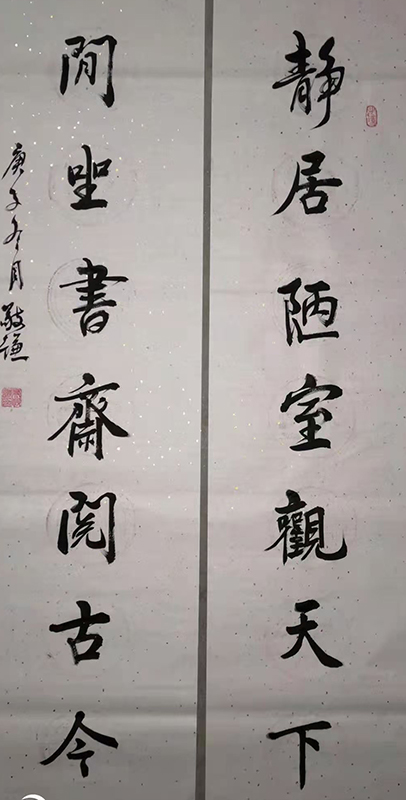 静居陋室觀天下
閒坐書齋閱古今
庚子冬月敬謙